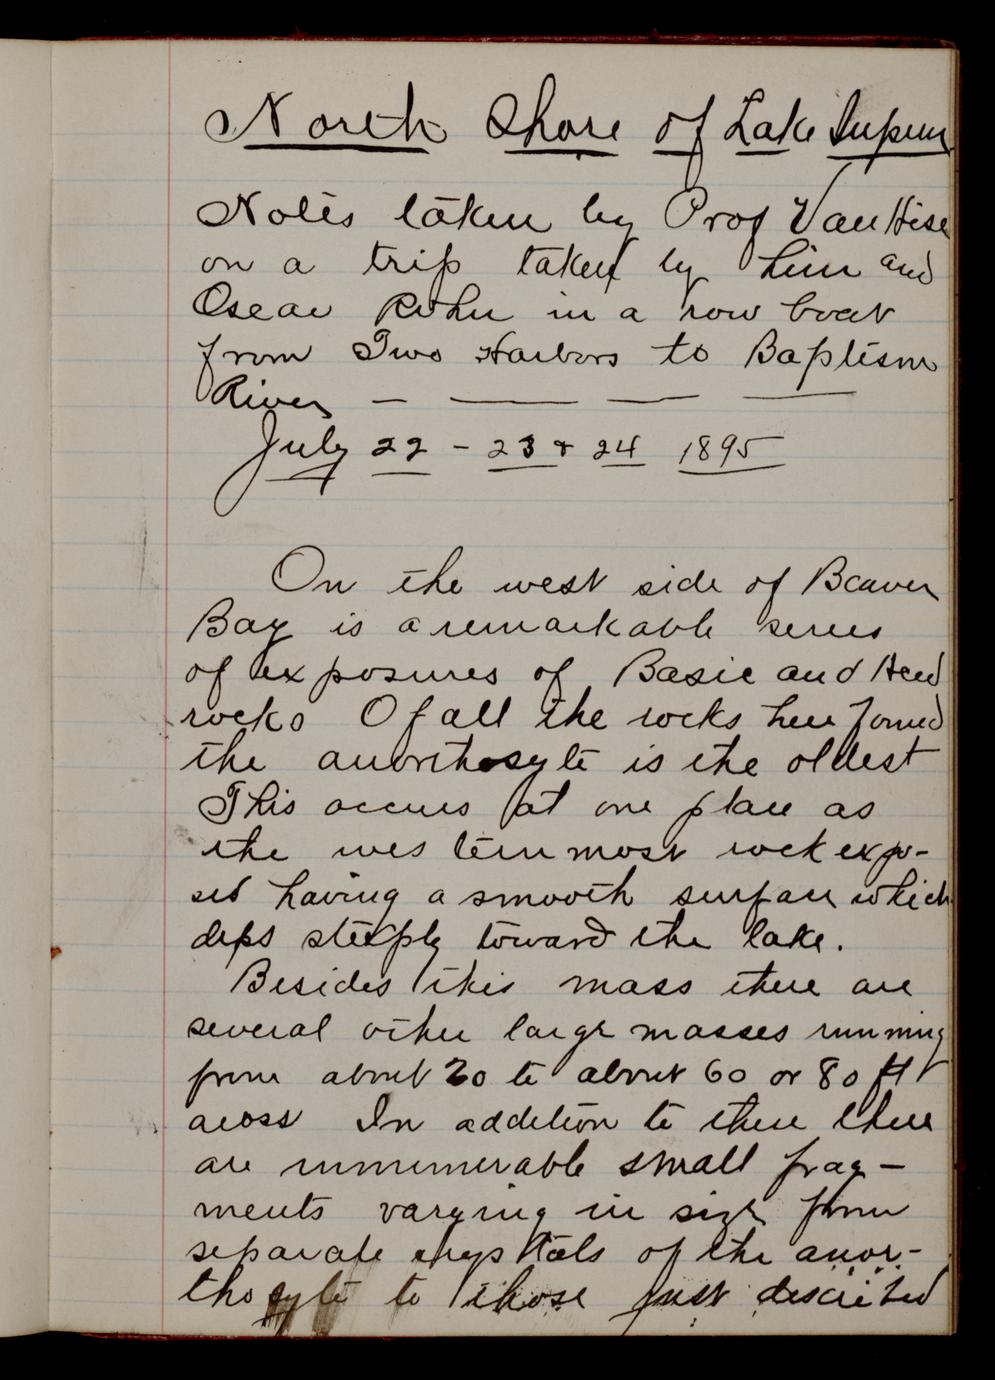 North Shore of Lake Superior
Notes taken by Prof Van Hise
on a trip taken by him and
Oscar Rohn in a row boat
from Two Harbors to Baptism
River — — — —
July 22 - 23 & 24 1895
On the west side of Beaver
Bay is a remarkable series
of exposures of Basic and Acid
rocks Of all the rocks here found
the anorthosyte is the oldest
This occurs at one place as
the westernmost rock expo-
sed having a smooth surface which
dips steeply toward the lake.
Besides this mass there are
several other large masses running
from about 20 to about 60 or 80 ft
across In addition to these there
are innumerable small frag-
ments varying in size from
separate crystals of the anor-
thosyte to those just described